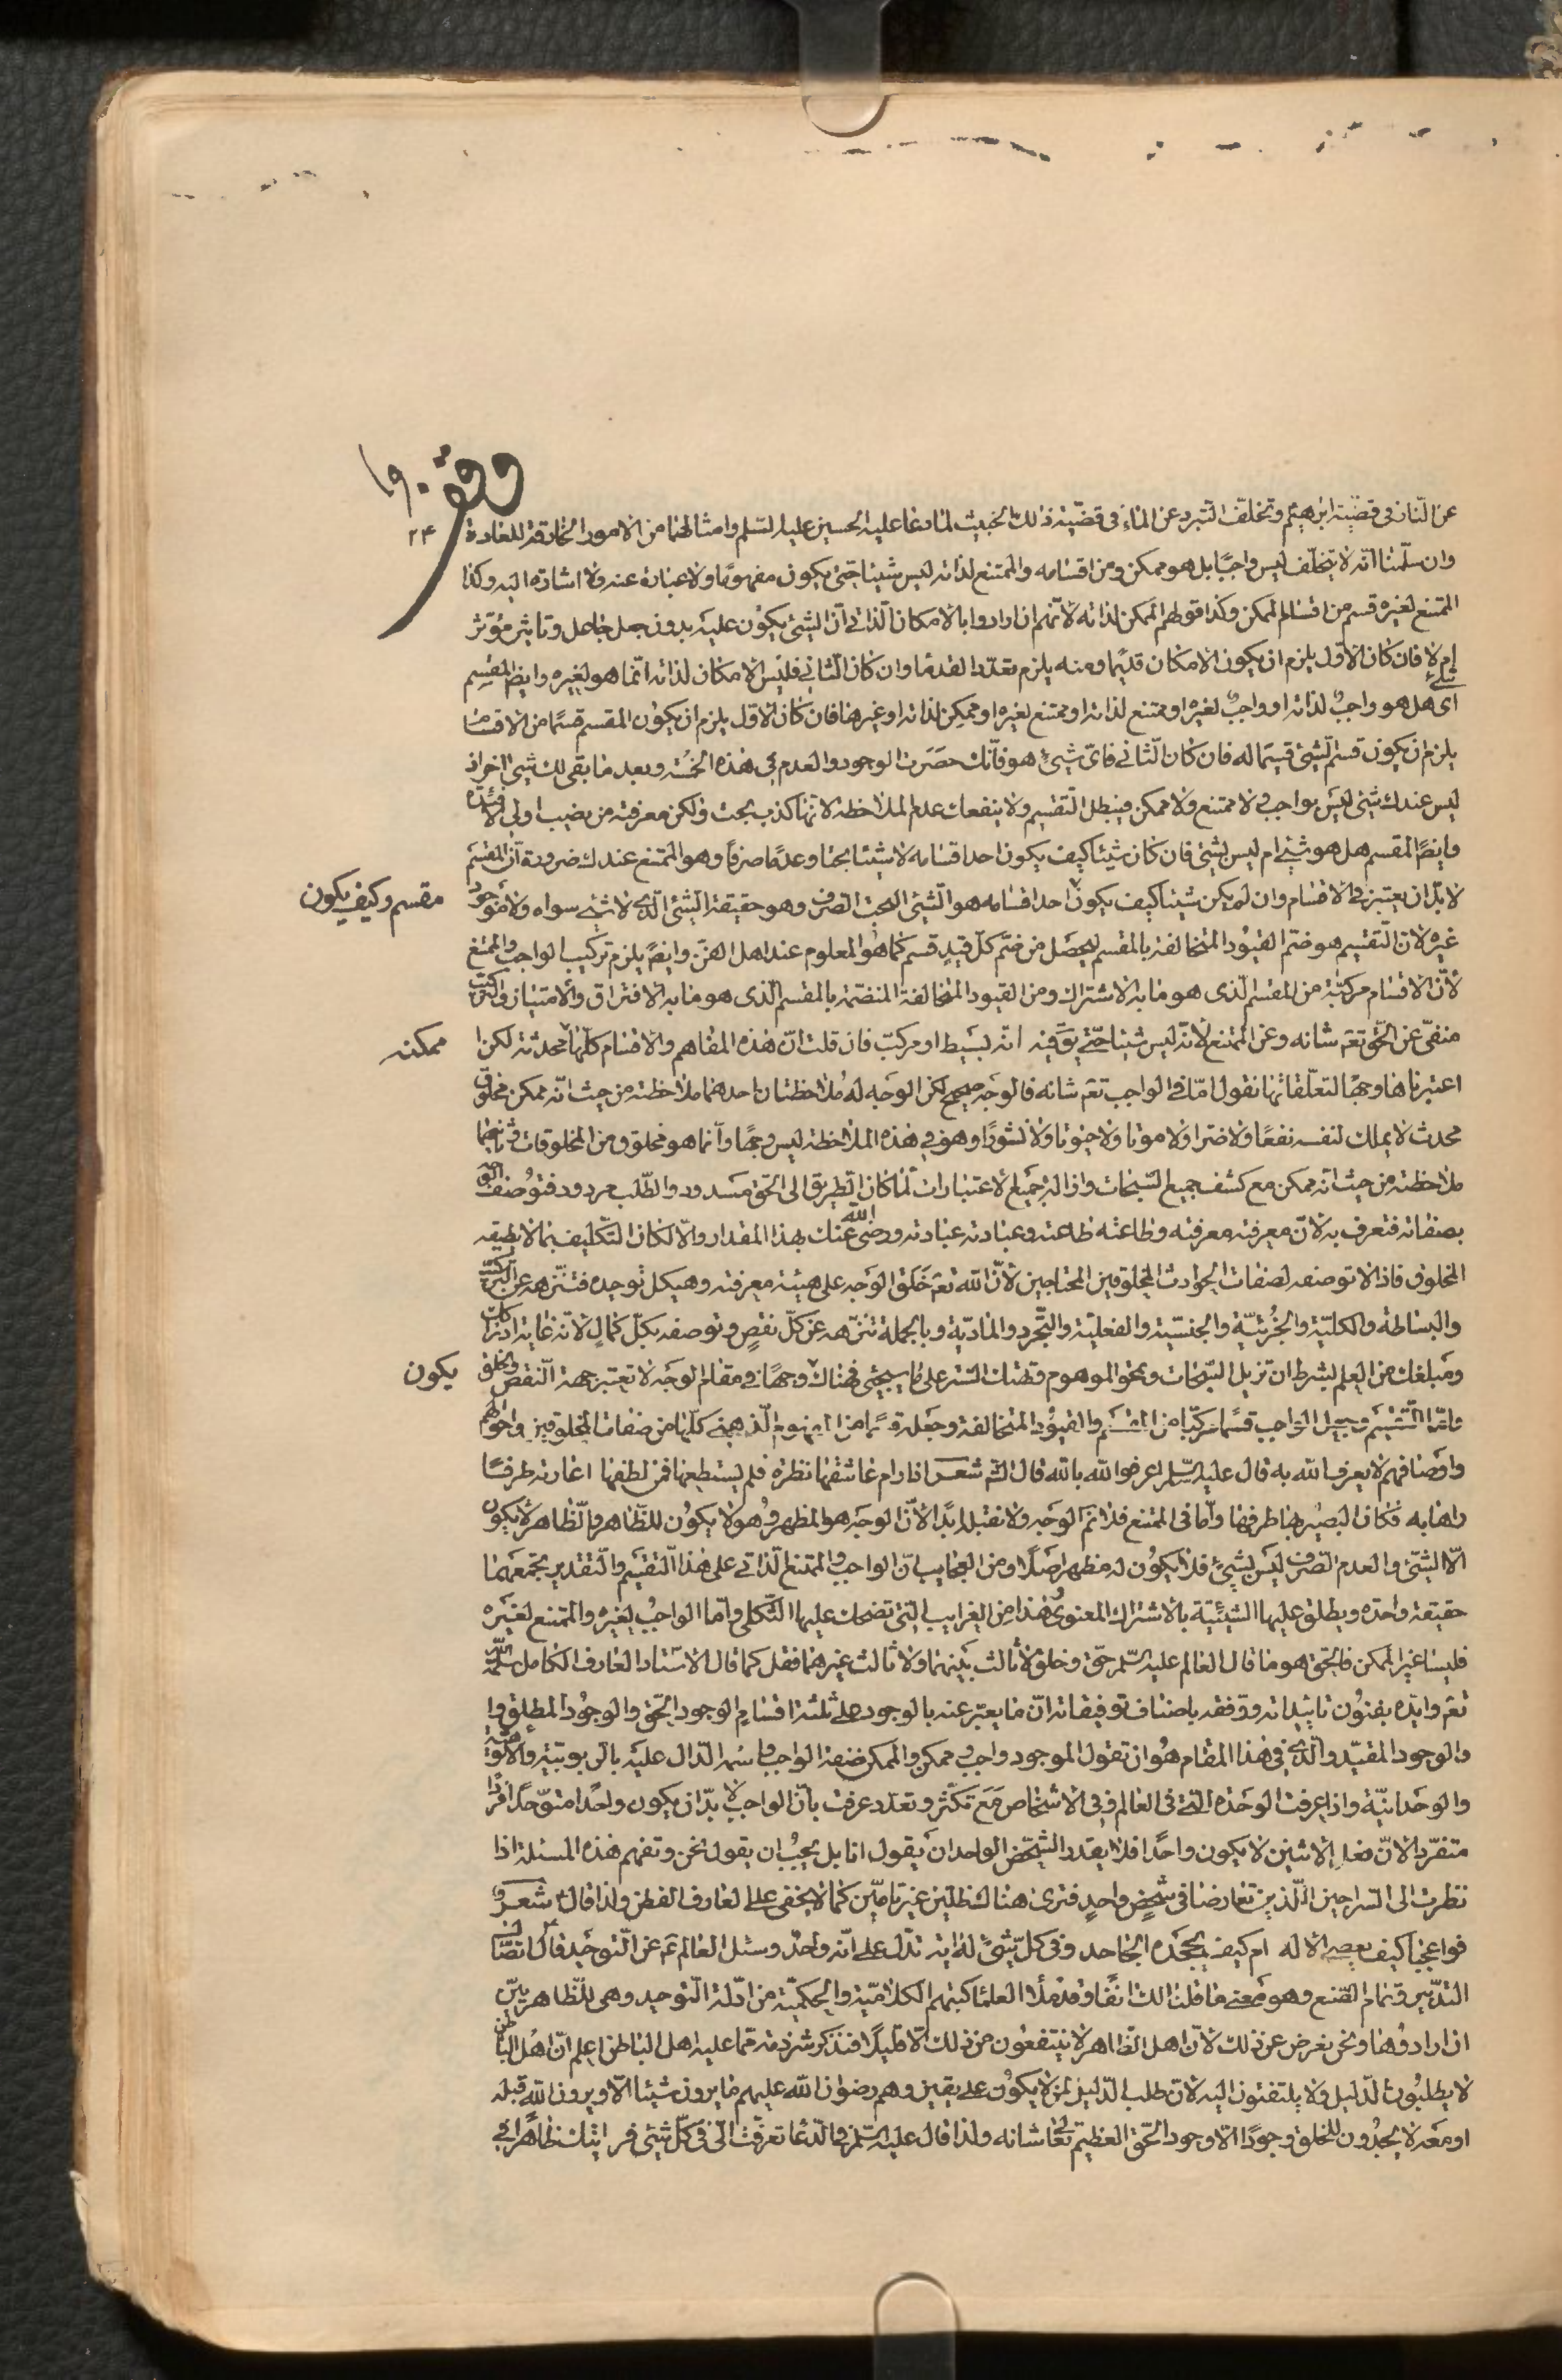 وقف
١٩٠
٢٤
عن النار في قضية ابرهيم وتخلف التبرد عن الماء في قضية ذلك الخبيث لما دعا عليه الحسين عليه السلم وامثالهما من الامور الخارقة للعادة
وان سلمنا انه لا يتخلف ليس واجبا بل هو ممكن ومن اقسامه والممتنع لذاته ليس شيئا حتى يكون مفهوما ولا عبارة عنه ولا اشارة اليه وكذا
الممتنع لغيره قسم من اقسام الممكن وكذا قولهم الممكن لذاته لانهم ان ارادوا بالامكان الذاتي ان الشيئ يكون عليه بدون جعل جاعل وتاثير مؤثر
ام لا فان كان الاول يلزم ان يكون الامكان قديما ومنه يلزم تعدد القدما وان كان الثاني فليس الامكان لذاته انما هو لغيره وايضا المقسم
اي هل هو واجب لذاته او واجب لغيره او ممتنع لذاته او ممتنع لغيره او ممكن لذاته او غيرها فان كان الاول يلزم ان يكون المقسم قسما من الاقسام
يلزم ان يكون قسم الشيئ قسيما له فان كان الثاني فاي شيئ هو فانك حصرت الوجود والعدم في هذه الخمسة وبعد ما بقي لك شيئ اخر اذ
ليس عندك شيئ ليس بواجب ولا ممتنع ولا ممكن فيبطل التقسيم ولا ينفعك عدم الملاحظة لانها كذب بحت ولكن معرفته من نصيب اولي الافئدة
وايضا المقسم هل هو شيئ ام ليس بشيئ فان كان شيئا كيف يكون احد اقسامه لا شيئا بحتا وعدما صرفا وهو الممتنع عندك ضرورة ان المقسم
لا بد ان يعتبر في الاقسام وان لم يكن شيئا كيف يكون احد اقسامه هو الشيئ البحت الصرف وهو حقيقة الشيئ الذي لا شيئ سواه ولا موجود
مقسم وكيف يكون
غيره لان التقسيم هو ضم القيود المتخالفة بالمقسم ليحصل من ضم كل قيد قسم كما هو المعلوم عند اهل الفن وايضا يلزم تركيب الواجب والممتنع
لان الاقسام مركبة من المقسم الذي هو ما به الاشتراك ومن القيود المتخالفة المنضمة بالمقسم الذي هو ما به الافتراق والامتياز والتركيب
منفي عن الحق تعم شانه وعن الممتنع لانه ليس شيئا حتى يق فيه انه بسيط او مركب فان قلت ان هذه المفاهيم والاقسام كلها محدثة لكن
ممكنه
اعتبرناها وجها لتعلقاتها نقول اما في الواجب تعم شانه فالوجه صحيح لكن الوجه له ملاحظتان احدهما ملاحظته من حيث انه ممكن مخلوق
محدث لا يملك لنفسه نفعا ولا ضرا ولا موتا ولا حيوتا ولا نشورا وهو في هذه الملاحظة ليس وجها وانما هو مخلوق من المخلوقات وثانيهما
ملاحظته من حيث انه ممكن مع كشف جميع السبحات وازالة جميع الاعتبارات لما كان الطريق الى الحق مسدود والطلب مردود فتوصف الوجه
بصفاته فتعرف به لان معرفته معرفته وطاعته طاعته وعبادته عبادته ورضى الله عنك بهذا المقدار والا لكان التكليف بما لا يطيقه
المخلوق فاذا لا توصفه لصفات الحوادث المخلوقين المحتاجين لان الله تعم خلق الوجه على هيئة معرفته وهيكل توحيده فتنزهه عن التركيب
والبساطة والكلية والجزئية والجنسية والفعلية والتجرد والمادية وبالجملة تنزهه عن كل نقص وتوصفه بكل كمال لانه غاية ادراكك
ومبلغك من العلم بشرط ان تزيل السبحات وتمحو الموهوم وتهتك الستر على ما سيجيئ فهناك وجها في مقام الوجه لا تعتبر جهة النقص والخلق
يكون
واما التقسيم وجعل الواجب قسما مركبا من المقسم والقيود المتخالفة وجعله قسما من المفهوم الذهني كلها من صفات المخلوقين واحوالهم
واوصافهم لا يعرف الله به قال عليه السلم اعرفوا الله بالله قال الشعر اذا رام عاشقها نظرة فلم يستطعها فمن لطفها اعارته طرفا
راها به فكان البصير بها طرفها واما في الممتنع فلا يتم الوجه ولا نقبل ابدا لان الوجه هو المظهر وهو لا يكون للظاهر والظاهر لا يكون
الا الشيئ والعدم الصرف ليس بشيئ فلا يكون له مظهر اصلا ومن العجايب ان الواجب والممتنع الذاتي على هذا التقسيم والتقدير يجمعهما
حقيقة واحدة ويطلق عليها الشيئية بالاشتراك المعنوي هذا من الغرايب التي تضحك عليها الثكلى واما الواجب لغيره والممتنع لغيره
فليسا غير الممكن فالحق هو ما قال العالم عليه السلم حق وخلق لا ثالث بينهما ولا ثالث غيرهما فقل كما قال الاستاد العارف الكامل سلمه الله
تعم وايده بفنون تاييداته ووفقه باصناف توفيقاته ان ما يعبر عنه بالوجود على ثلثة اقسام الوجود الحق والوجود المطلق وا
والوجود المقيد والذي في هذا المقام هو ان تقول الموجود واجب وممكن والممكن صفة الواجب واسمه الدال عليه بالربوبية والالوهية
والوحدانية واذا عرفت الوحدة التي في العالم وفي الاشخاص مع تكثر وتعدد عرفت بان الواجب لا بد ان يكون واحدا متوحدا فردا
متفردا لان فعل الاثنين لا يكون واحدا فلا يقدر الشخص الواحد ان يقول انا بل يجب ان يقول نحن وتفهم هذه المسئلة اذا
نظرت الى السراجين اللذين تعارضا في شخص واحد فترى هناك ظلين غير تامين كما لا يخفى على العارف الفطن ولذا قال شعر
فوا عجبا كيف يعصى الاله ام كيف يجحده الجاحد وفي كل شيئ له اية تدل على انه واحد وسئل العالم عم عن التوحيد قال اتصال
التدبير وتمام الصنع وهو معنى ما قلنا لك انفا وقد ملأ العلما كتبهم الكلامية والحكمية من ادلة التوحيد وهي للظاهريين
ان ارادوها ونحن نعرض عن ذلك لان اهل الظاهر لا ينتفعون من ذلك الا قليلا فنذكر شرذمة مما عليه اهل الباطن اعلم ان اهل الباطن
لا يطلبون الدليل ولا يلتفتون اليه لان طلب الدليل لمن لا يكون على يقين وهم رضوان الله عليهم ما يرون شيئا الا ويرون الله قبله
او معه لا يجدون للخلق وجودا الا وجود الحق العظيم تعالى شانه ولذا قال عليه السلم في الدعا تعرفت الي في كل شيئ فرايتك ظاهرا في